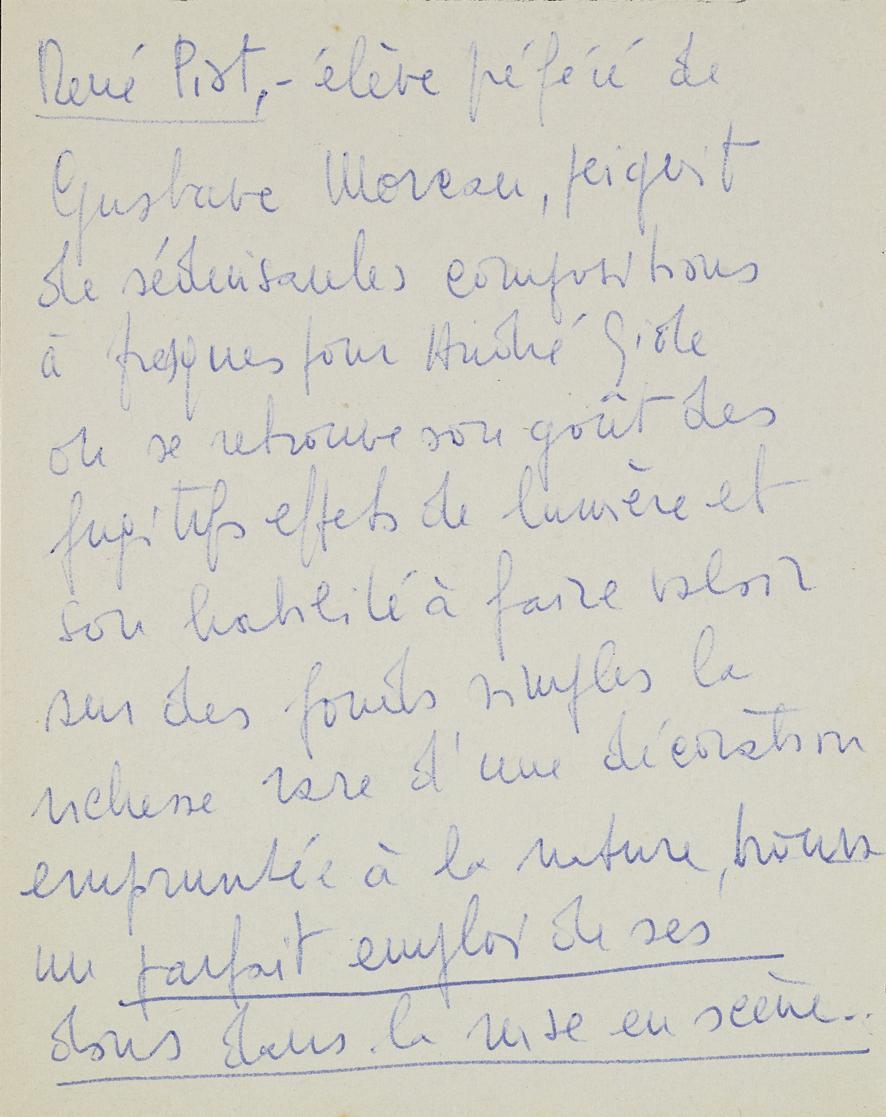 René Piot,- élève préféré de
Gustave Moreau, peignit
de séduisantes compositions
à fresques pour André Gide
où se retrouve son goût des
fugitifs effets de lumière et
son habileté à faire valoir
sur des fonds simples la
richesse rare d'une décoration
empruntée à la nature, trouva
un parfait emploi de ses
dons dans la mise en scène..